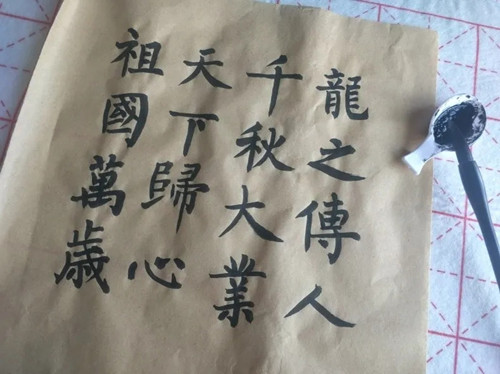 龍之傳人
千秋大業
天下歸心
祖國萬歲